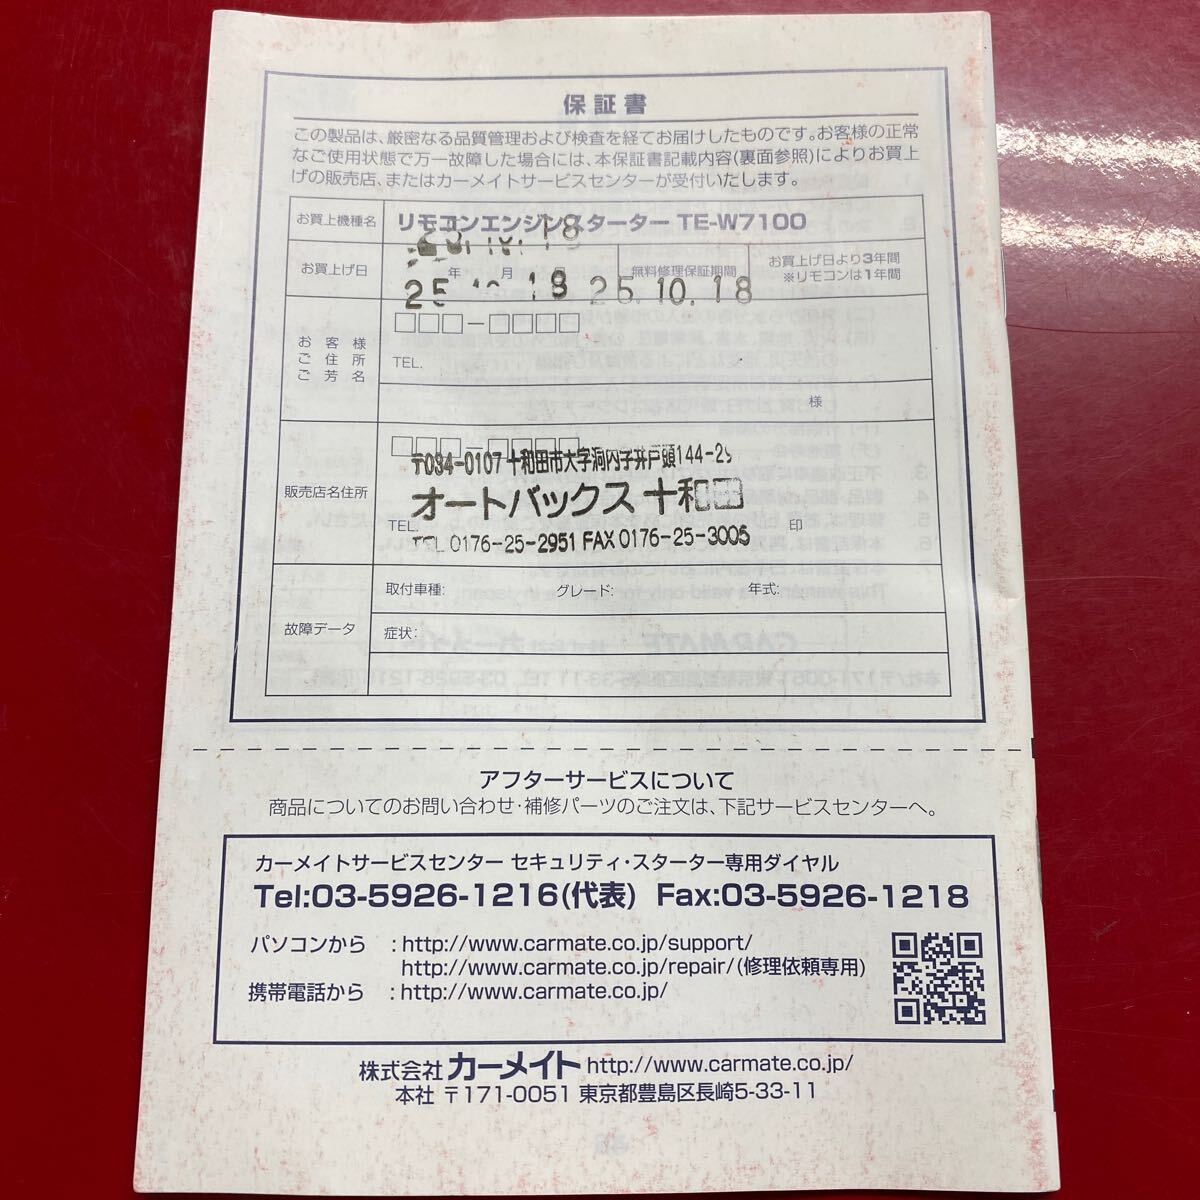 保証書
この製品は、厳密なる品質管理および検査を経てお届けしたものです。お客様の正常
なご使用状態で万一故障した場合には、本保証書記載内容(裏面参照)によりお買上
げの販売店、またはカーメイトサービスセンターが受付いたします。
お買上機種名 リモコンエンジンスターター TE-W7100
18
お買上げ日 年 月 日 無料修理保証期間 お買上げ日より3年間
※リモコンは1年間
25 18 25.10.18
お客様
ご住所
ご芳名
TEL.
様
〒034-0107 十和田市大字洞内字井戸頭144-29
販売店名住所 オートバックス 十和田
TEL. 印
TEL 0176-25-2951 FAX 0176-25-3005
取付車種: グレード: 年式:
故障データ 症状:
アフターサービスについて
商品についてのお問い合わせ・補修パーツのご注文は、下記サービスセンターへ。
カーメイトサービスセンター セキュリティ・スターター専用ダイヤル
Tel:03-5926-1216(代表) Fax:03-5926-1218
パソコンから :http://www.carmate.co.jp/support/
http://www.carmate.co.jp/repair/(修理依頼専用)
携帯電話から :http://www.carmate.co.jp/
株式会社 カーメイト http://www.carmate.co.jp/
本社 〒171-0051 東京都豊島区長崎5-33-11